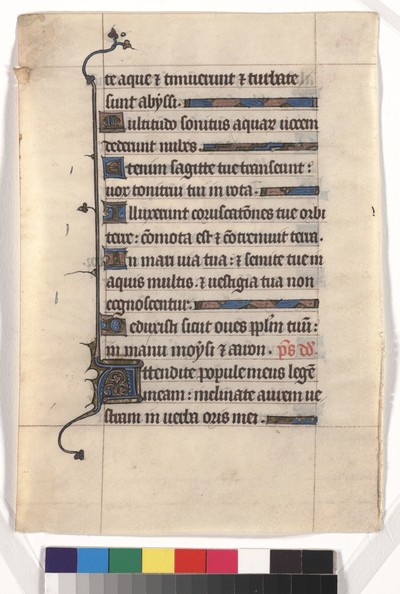 te aque ⁊ timuerunt ⁊ turbate
sunt abyssi.
Multitudo sonitus aquaꝝ uocem
dederunt nubes.
Etenim sagitte tue transeunt:
uox tonitrui tui in rota.
Illuxerunt coruscatōnes tue orbi
terre: cōmota est ⁊ cōtremuit terra.
In mari uia tua: ⁊ semite tue in
aquis multis. ⁊ uestigia tua non
cognoscentur.
Deduxisti sicut oues pplm tuū:
in manu moysi ⁊ aaron. ps dd
Attendite popule meus legē
meam: inclinate aurem ue
stram in uerba oris mei.